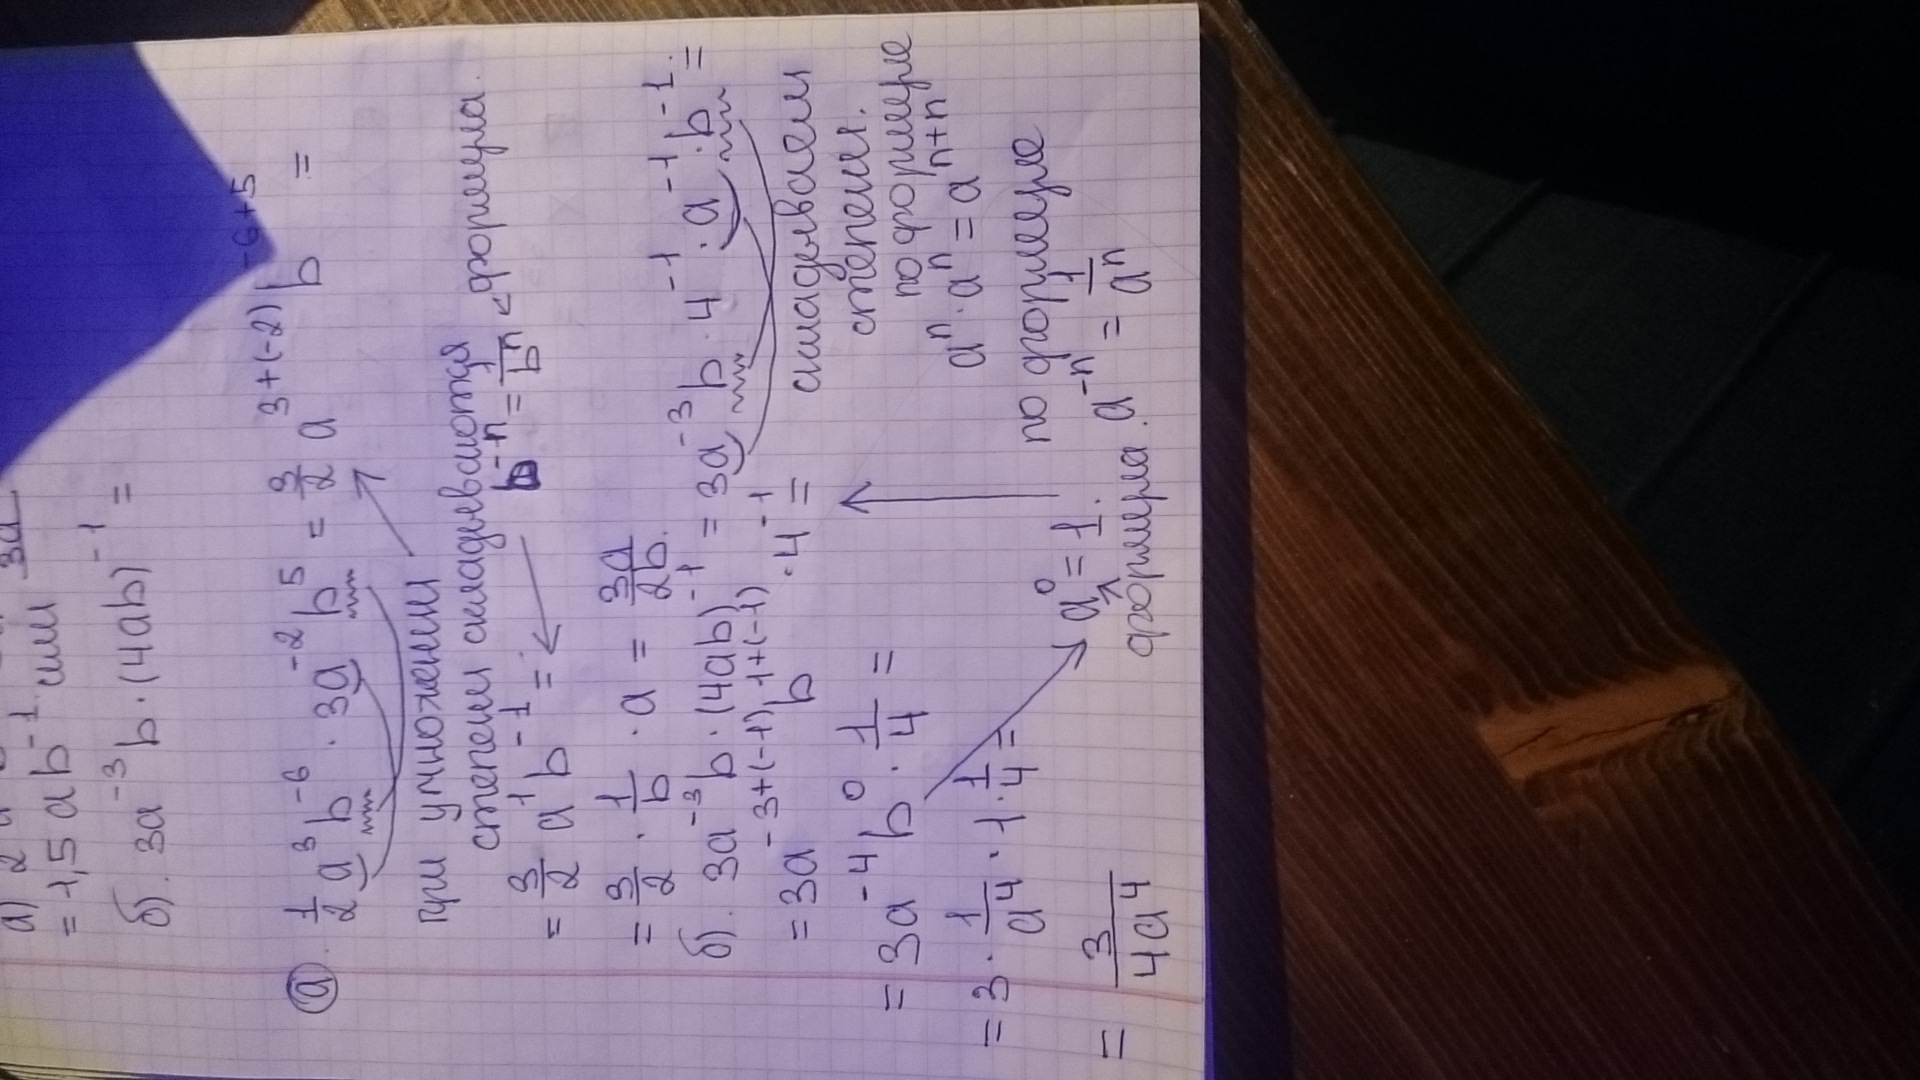 а) 2
3a
= 1,5 a b⁻¹ или
б). 3a⁻³b·(4ab)⁻¹ =
(а). 1/2 a³b⁻⁶ · 3a⁻²b⁵ = 3/2 a³⁺⁽⁻²⁾ b⁻⁶⁺⁵ =
при умножении
степени складываются
= 3/2 a¹b⁻¹ = b⁻ⁿ = 1/bⁿ < формула.
= 3/2 · 1/b · a = 3a/2b.
б). 3a⁻³b·(4ab)⁻¹ = 3a⁻³b·4⁻¹·a⁻¹·b⁻¹ =
= 3a⁻³⁺⁽⁻¹⁾ b¹⁺⁽⁻¹⁾ · 4⁻¹ =
складываем
степени.
= 3a⁻⁴b⁰ · 1/4 =
по формуле
aⁿ·aⁿ = aⁿ⁺ⁿ
= 3 · 1/a⁴ · 1 · 1/4 =
a⁰ = 1.
формула.
по формуле
a⁻ⁿ = 1/aⁿ
= 3/4a⁴